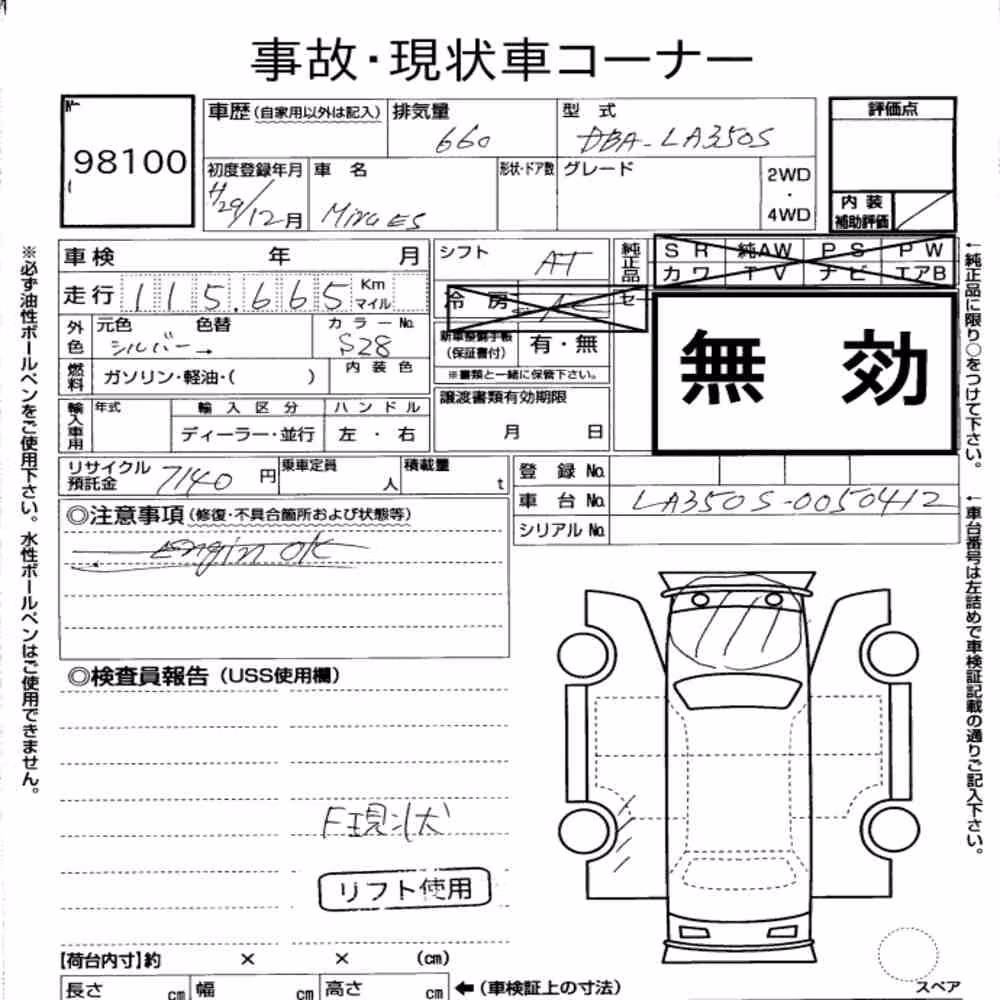 事故・現状車コーナー
№ 98100
車歴(自家用以外は記入) 排気量 660 型式 DBA-LA350S 評価点
初度登録年月 H29/12月 車名 Mira ES 形状・ドア数 グレード 2WD・4WD
内装補助評価
車検 年 月
走行 115,665 Km マイル
シフト AT
純正品 SR 純AW PS PW
カワ TV ナビ エアB
冷房 AC
セ
外色 元色 シルバー → 色替 カラーNo. S28
新車整備手帳(保証書付) 有・無
※書類と一緒に保管下さい。
無効
燃料 ガソリン・軽油・( ) 内装色
輸入車用 年式 輸入区分 ディーラー・並行 ハンドル 左・右
譲渡書類有効期限 月 日
リサイクル預託金 7140 円 乗車定員 人 積載量 t
登録No.
車台No. LA350S-0050412
シリアルNo.
◎注意事項(修復・不具合箇所および状態等)
Engin OK
◎検査員報告(USS使用欄)
F現状
リフト使用
【荷台内寸】約 × × (cm)
長さ cm 幅 cm 高さ cm ←(車検証上の寸法)
スペア
※必ず油性ボールペンをご使用下さい。水性ボールペンはご使用できません。
←純正品に限り○をつけて下さい。
←車台番号は左詰めで車検証記載の通りご記入下さい。